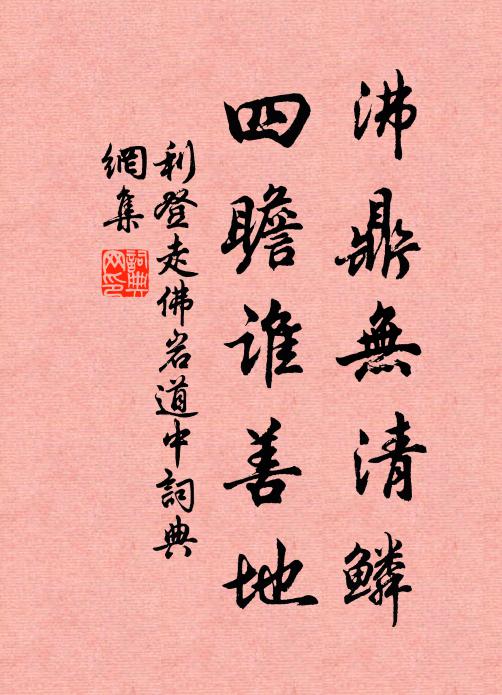 沸鼎無清鱗
四瞻誰善地
利登走佛岩道中詞典
網集
詞典
网印